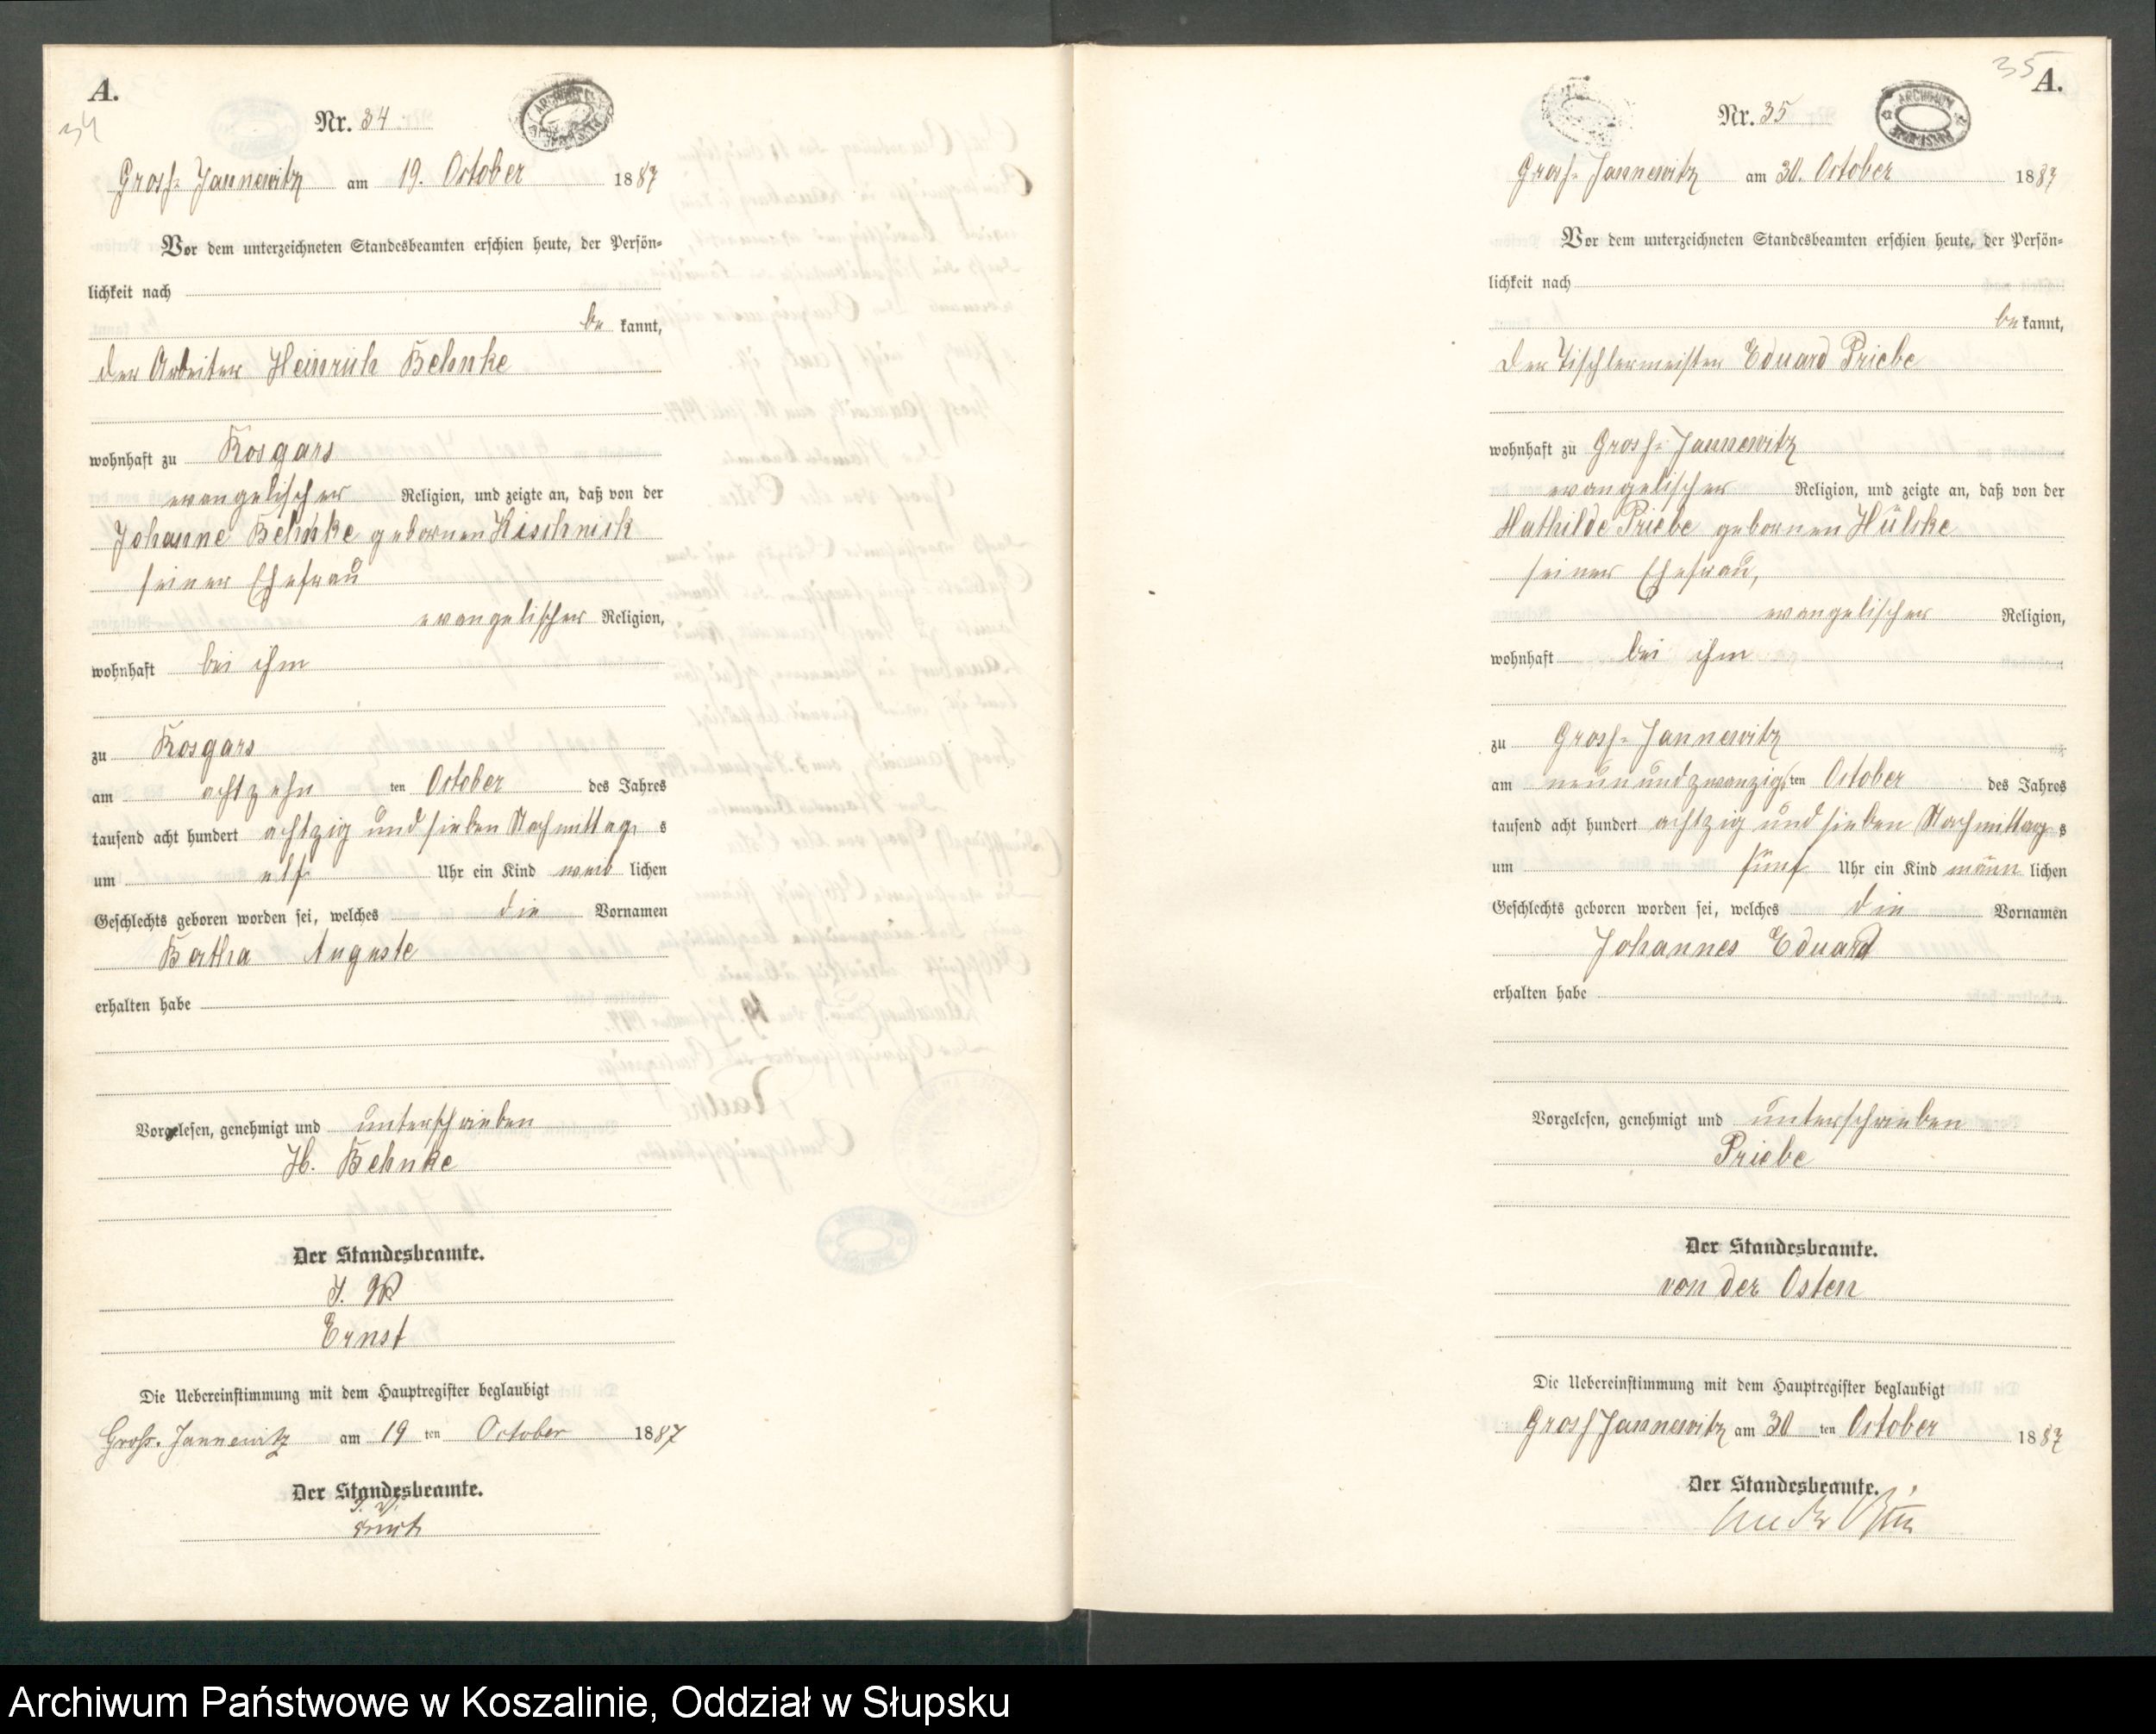 A.
34
Nr. 34
Gross-Jannewitz am 19. October 1887
Vor dem unterzeichneten Standesbeamten erschien heute, der Persön-
lichkeit nach
be kannt,
der Arbeiter Heinrich Behnke
wohnhaft zu Rosgars
evangelischer Religion, und zeigte an, daß von der
Johanne Behnke gebornen Kischnick
seiner Ehefrau
evangelischer Religion,
wohnhaft bei ihm
zu Rosgars
am achtzehn ten October des Jahres
tausend acht hundert achtzig und sieben Nachmittag s
um elf Uhr ein Kind weib lichen
Geschlechts geboren worden sei, welches die Vornamen
Bertha Auguste
erhalten habe
Vorgelesen, genehmigt und unterschrieben
H. Behnke
Der Standesbeamte.
I. V.
Ernst
Die Uebereinstimmung mit dem Hauptregister beglaubigt
Gross-Jannewitz am 19 ten October 1887
Der Standesbeamte.
I. V.
Ernst
35
A.
Nr. 35
Gross-Jannewitz am 30. October 1887
Vor dem unterzeichneten Standesbeamten erschien heute, der Persön-
lichkeit nach
be kannt,
der Tischlermeister Eduard Priebe
wohnhaft zu Gross-Jannewitz
evangelischer Religion, und zeigte an, daß von der
Mathilde Priebe gebornen Hülske
seiner Ehefrau,
evangelischer Religion,
wohnhaft bei ihm
zu Gross-Jannewitz
am neun und zwanzigs ten October des Jahres
tausend acht hundert achtzig und sieben Nachmittag s
um fünf Uhr ein Kind männ lichen
Geschlechts geboren worden sei, welches die Vornamen
Johannes Eduard
erhalten habe
Vorgelesen, genehmigt und unterschrieben
Priebe
Der Standesbeamte.
von der Osten
Die Uebereinstimmung mit dem Hauptregister beglaubigt
Gross Jannewitz am 30 ten October 1887
Der Standesbeamte.
von der Osten
Archiwum Państwowe w Koszalinie, Oddział w Słupsku